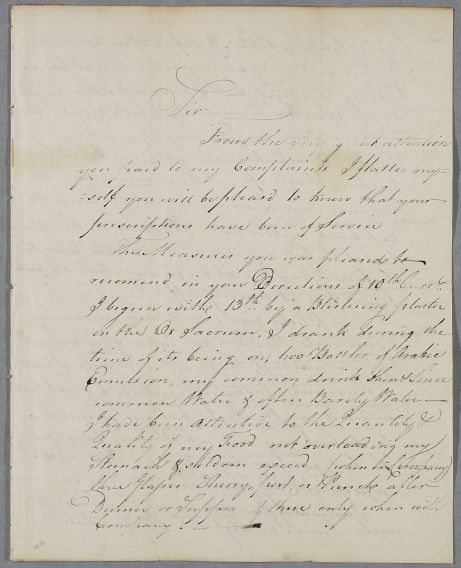 Sir
From the very great attention
you paid to my Complaints I flatter my=
=self you will be pleased to know that your
prescriptions have been of Service
The Measures you was pleased to
recomend in your Directions of 10th Curr.t
I begun with 13th by a Blistering plaster
on the Os Sacrum, & I drank during the
time of its being on, two Bottles of Arabic
Emulsion, my common drink then & Since
common Water & often Barely Water —
I have been attentive to the Quantity &
Quality of my Food not overloading my
Stomach & seldom exceed (when in Company)
three Glasses Sherry, port, or Punch after
Dinner or Supper & these only when with
Company